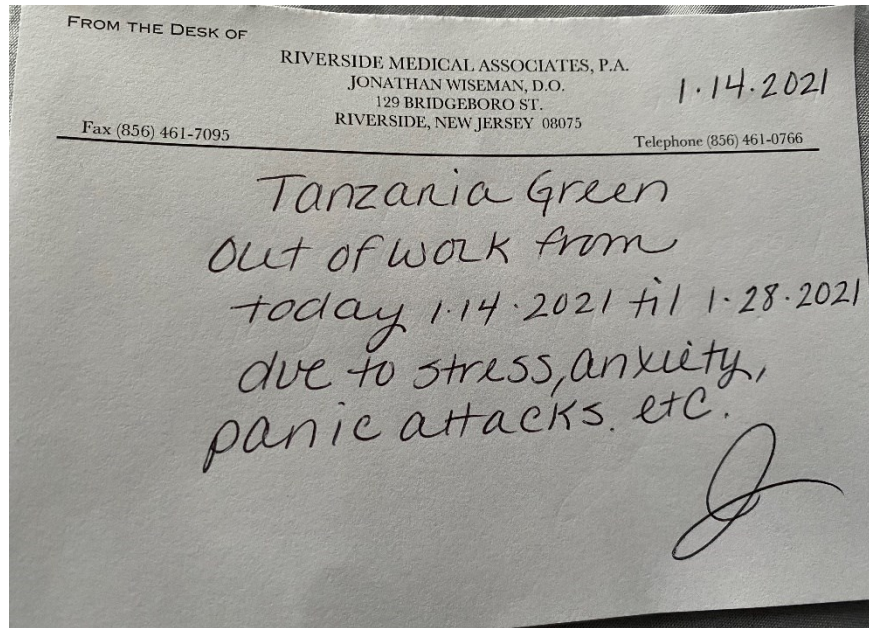 FROM THE DESK OF
RIVERSIDE MEDICAL ASSOCIATES, P.A.
JONATHAN WISEMAN, D.O.
129 BRIDGEBORO ST.
RIVERSIDE, NEW JERSEY 08075
1.14.2021
Fax (856) 461-7095
Telephone (856) 461-0766
Tanzania Green
out of work from
today 1.14.2021 til 1.28.2021
due to stress, anxiety,
panic attacks. etc.